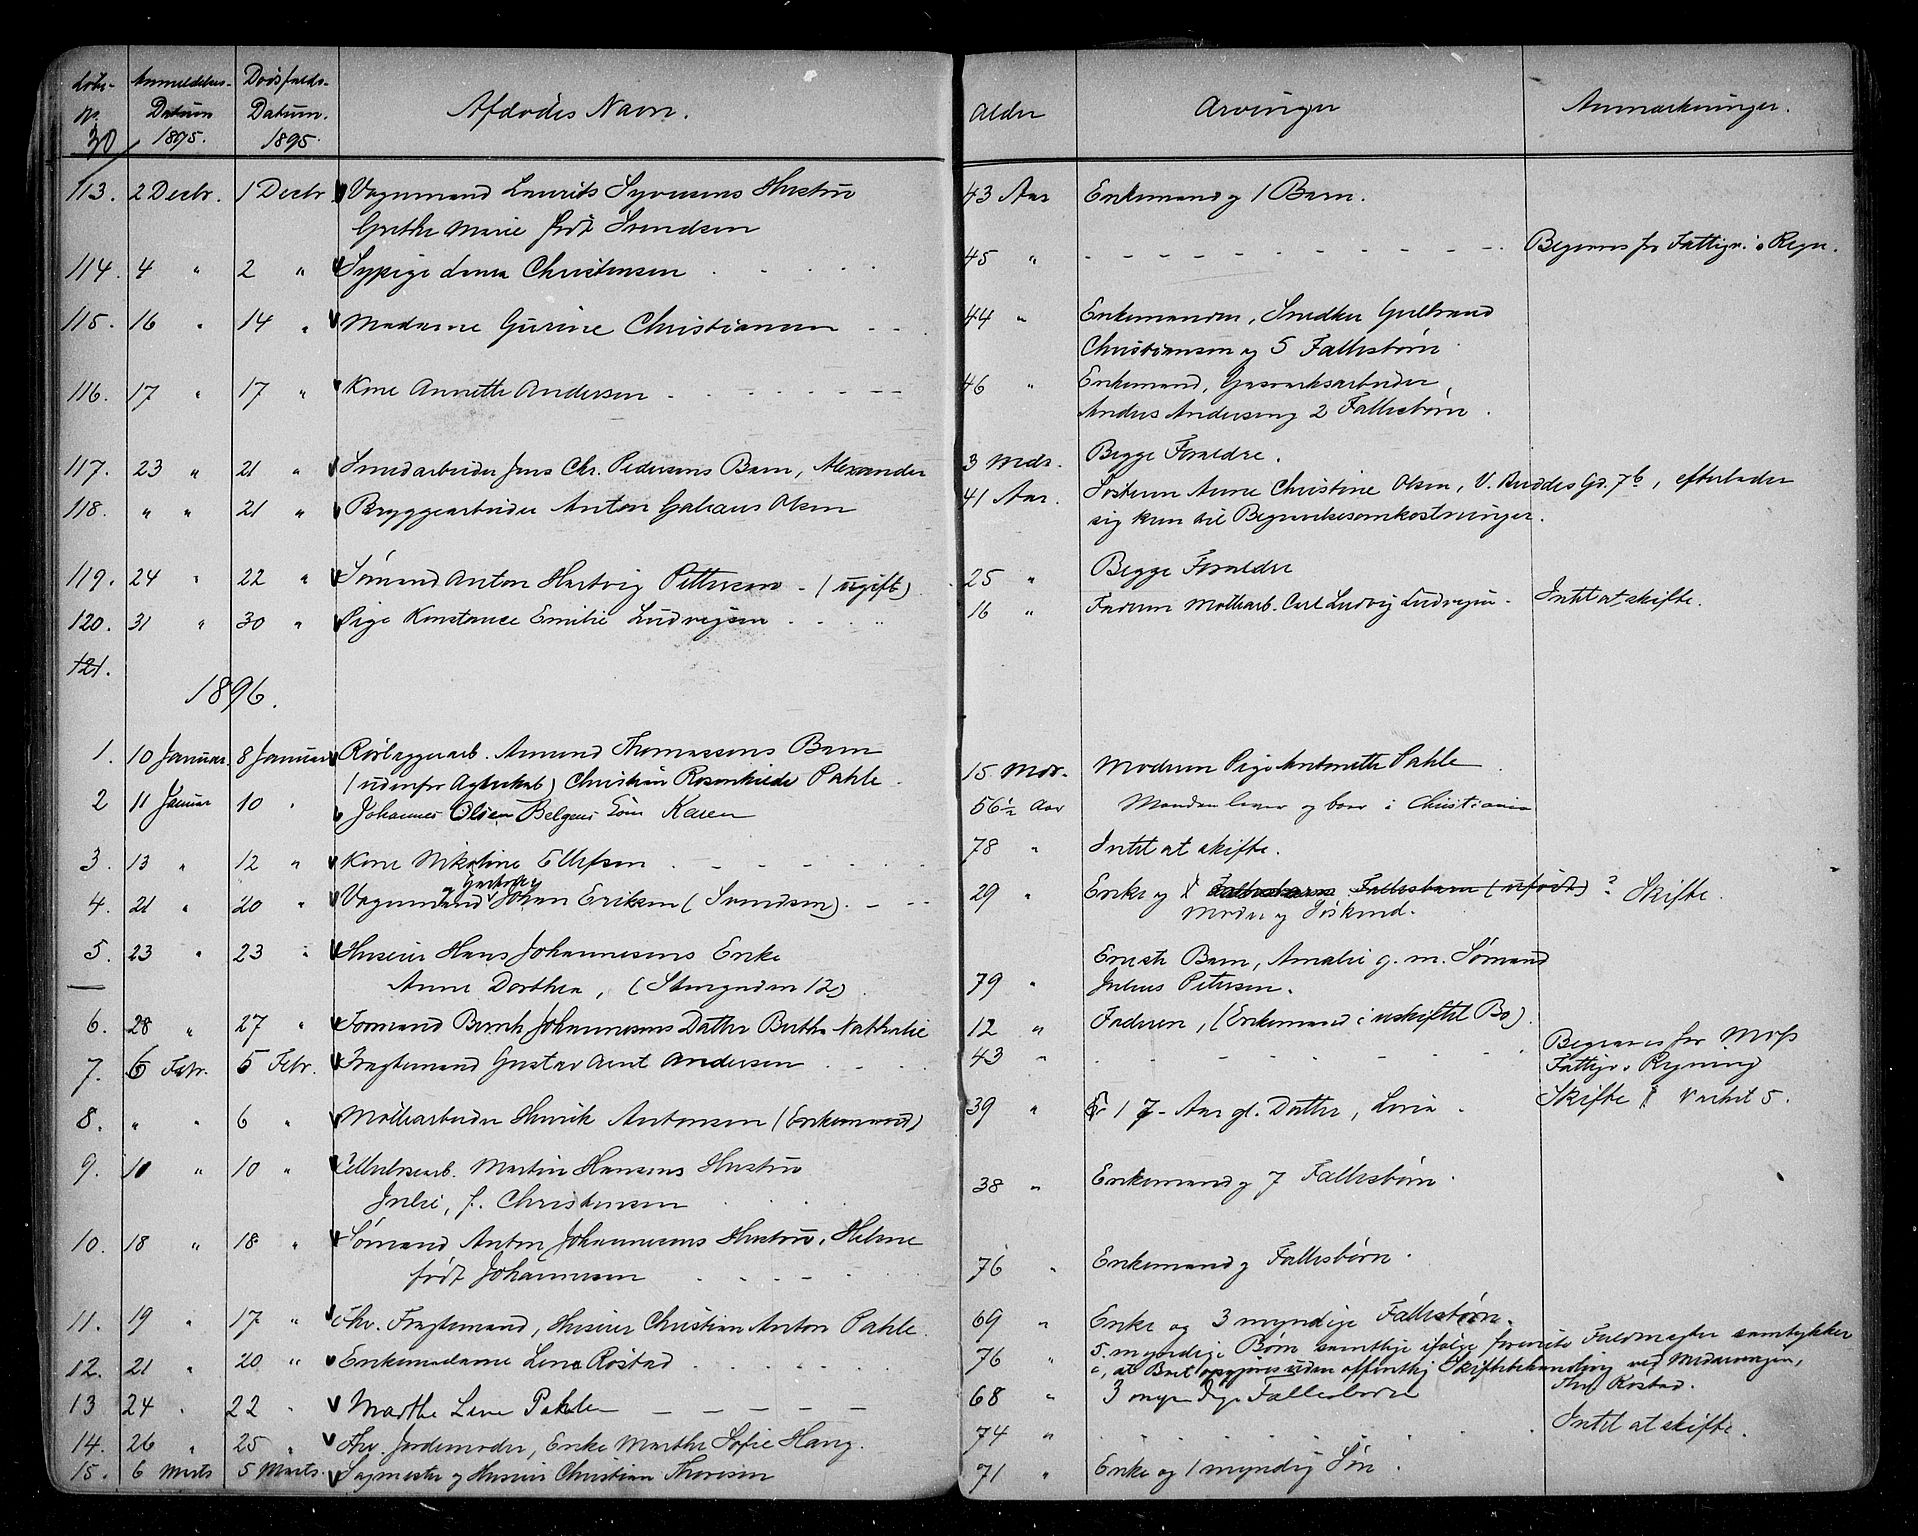 Løbe- Anmeldelses- Dødsfalds- Afdødes Navn. Alder Arvinger Anmærkninger.
No Datum Datum.
30 1895. 1895.
113. 2 Decbr. 1 Decbr. Vognmand Laurits Syversens Hustru 43 Aar Enkemand og 1 Barn.
Grethe Marie født Svendsen
114. 4 " 2 " Sypige Lena Christensen 45 " Begraves for Fattigv. Regn.
115. 16 " 14 " Madame Gurine Christiansen 44 " Enkemanden, Snedker Gulbrand
Christiansen og 5 Fællesbørn
116. 17 " 17 " Kone Annette Andersen 46 " Enkemand, Gasværksarbeider,
Anders Andersen og 2 Fællesbørn.
117. 23 " 21 " Smedarbeider Jens Chr. Pedersens Barn, Alexander 3 Mdr. Begge Forældre.
118. " " 21 " Bryggearbeider Anton Galeaus Olsen 41 Aar. Søsteren Anne Christine Olsen, V. Buddes Gd. 7b, efterlader
sig kun til Begravelsesomkostninger.
119. 24 " 22 " Sømand Anton Hartvig Pettersen - (ugift) 25 " Begge Forældre
120. 31 " 30 " Pige Konstance Emilie Ludvigsen 16 " Faderen Møllearb. Carl Ludvig Ludvigsen - Intet at skifte.
121.
1896.
1. 10 Januar. 8 Januar Amund Thomassens Barn 15 Mdr. Moderen Pige Antonette Pahle
(udenfor Ægteskab) Christian Rosenkilde Pahle.
2 11 Januar 10 " Johannes Olsen Belgens Karen 56½ Aar Manden lever og boer i Christiania
3. 13 " 12 " Kone Nikoline Ellefsen 78 " Intet at skifte.
og Gaardbr.
4. 21 " 20 " Vognmand Johan Eriksen (Svendsen). 29 " Enke og 1 Fællesbarn Fællesbarn (ufødt) ? Skifte.
Moder og Søskend.
5. 23 " 23 " Huseier Hans Johannesens Enke Eneste Barn, Amalie g. m. Sømand
Anne Dorthea, (Stengaden 12) 79 " Julius Petersen.
6. 28 " 27 " Formand Bernh. Johannesens Datter Bertha Nathalie 12 " Faderen, (Enkemand i uskiftet Bo).
7. 6 Febr. 5 Febr. Fragtemand Gustav Arnt Andersen 43 " Begraves for Moss
Fattigv. Regning
8. " " 6 " Møllearbeider Henrik Antonsen (Enkemand) 39 " 1 7-Aar gl. Datter, Lovia. Skifte Værket 5.
9. 10 " 10 " Martin Hansens Hustru 38 " Enkemand og 7 Fællesbørn.
Julie, f. Christensen
10. 18 " 18 " Sømand Anton Johannesens Hustru, Helene 76 " Enkemand og Fællesbørn.
født Johannesen
11. 19 " 17 " Fhv. Fragtemand, Huseier Christian Anton Pahle. 69 " Enke og 3 myndige Fællesbørn.
12. 21 " 20 " Enkemadame Lena Rostad 76 " 5 myndige Børn samtlige ifølge foreviste Fuldmagter samtykker
i, at Boet opgjøres uden offentlig Skiftebehandling ved Medarvingen,
Thv. Rostad.
13 24 " 22 " Marthe Lene Pahle 68 " 3 myndige Fællesbørn
14. 26 " 25 " Fhv. Jordemoder, Enke Marthe Sofie Haug. 74 " Intet at skifte.
15. 6 Marts 5 Marts. Sagmester og Huseier Christian Thoresen 71 " Enke og 1 myndig Søn.